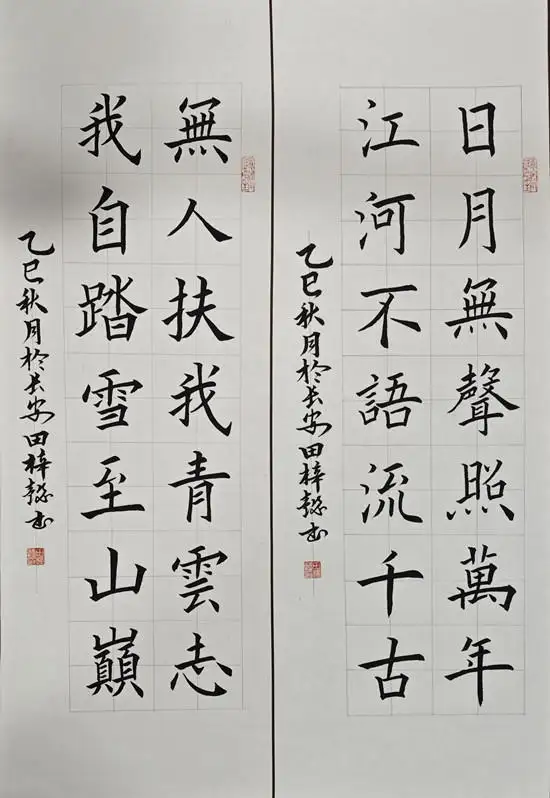 日月無聲照萬年
江河不語流千古
乙巳秋月於长安田梓懿书
無人扶我青雲志
我自踏雪至山巔
乙巳秋月於长安田梓懿书